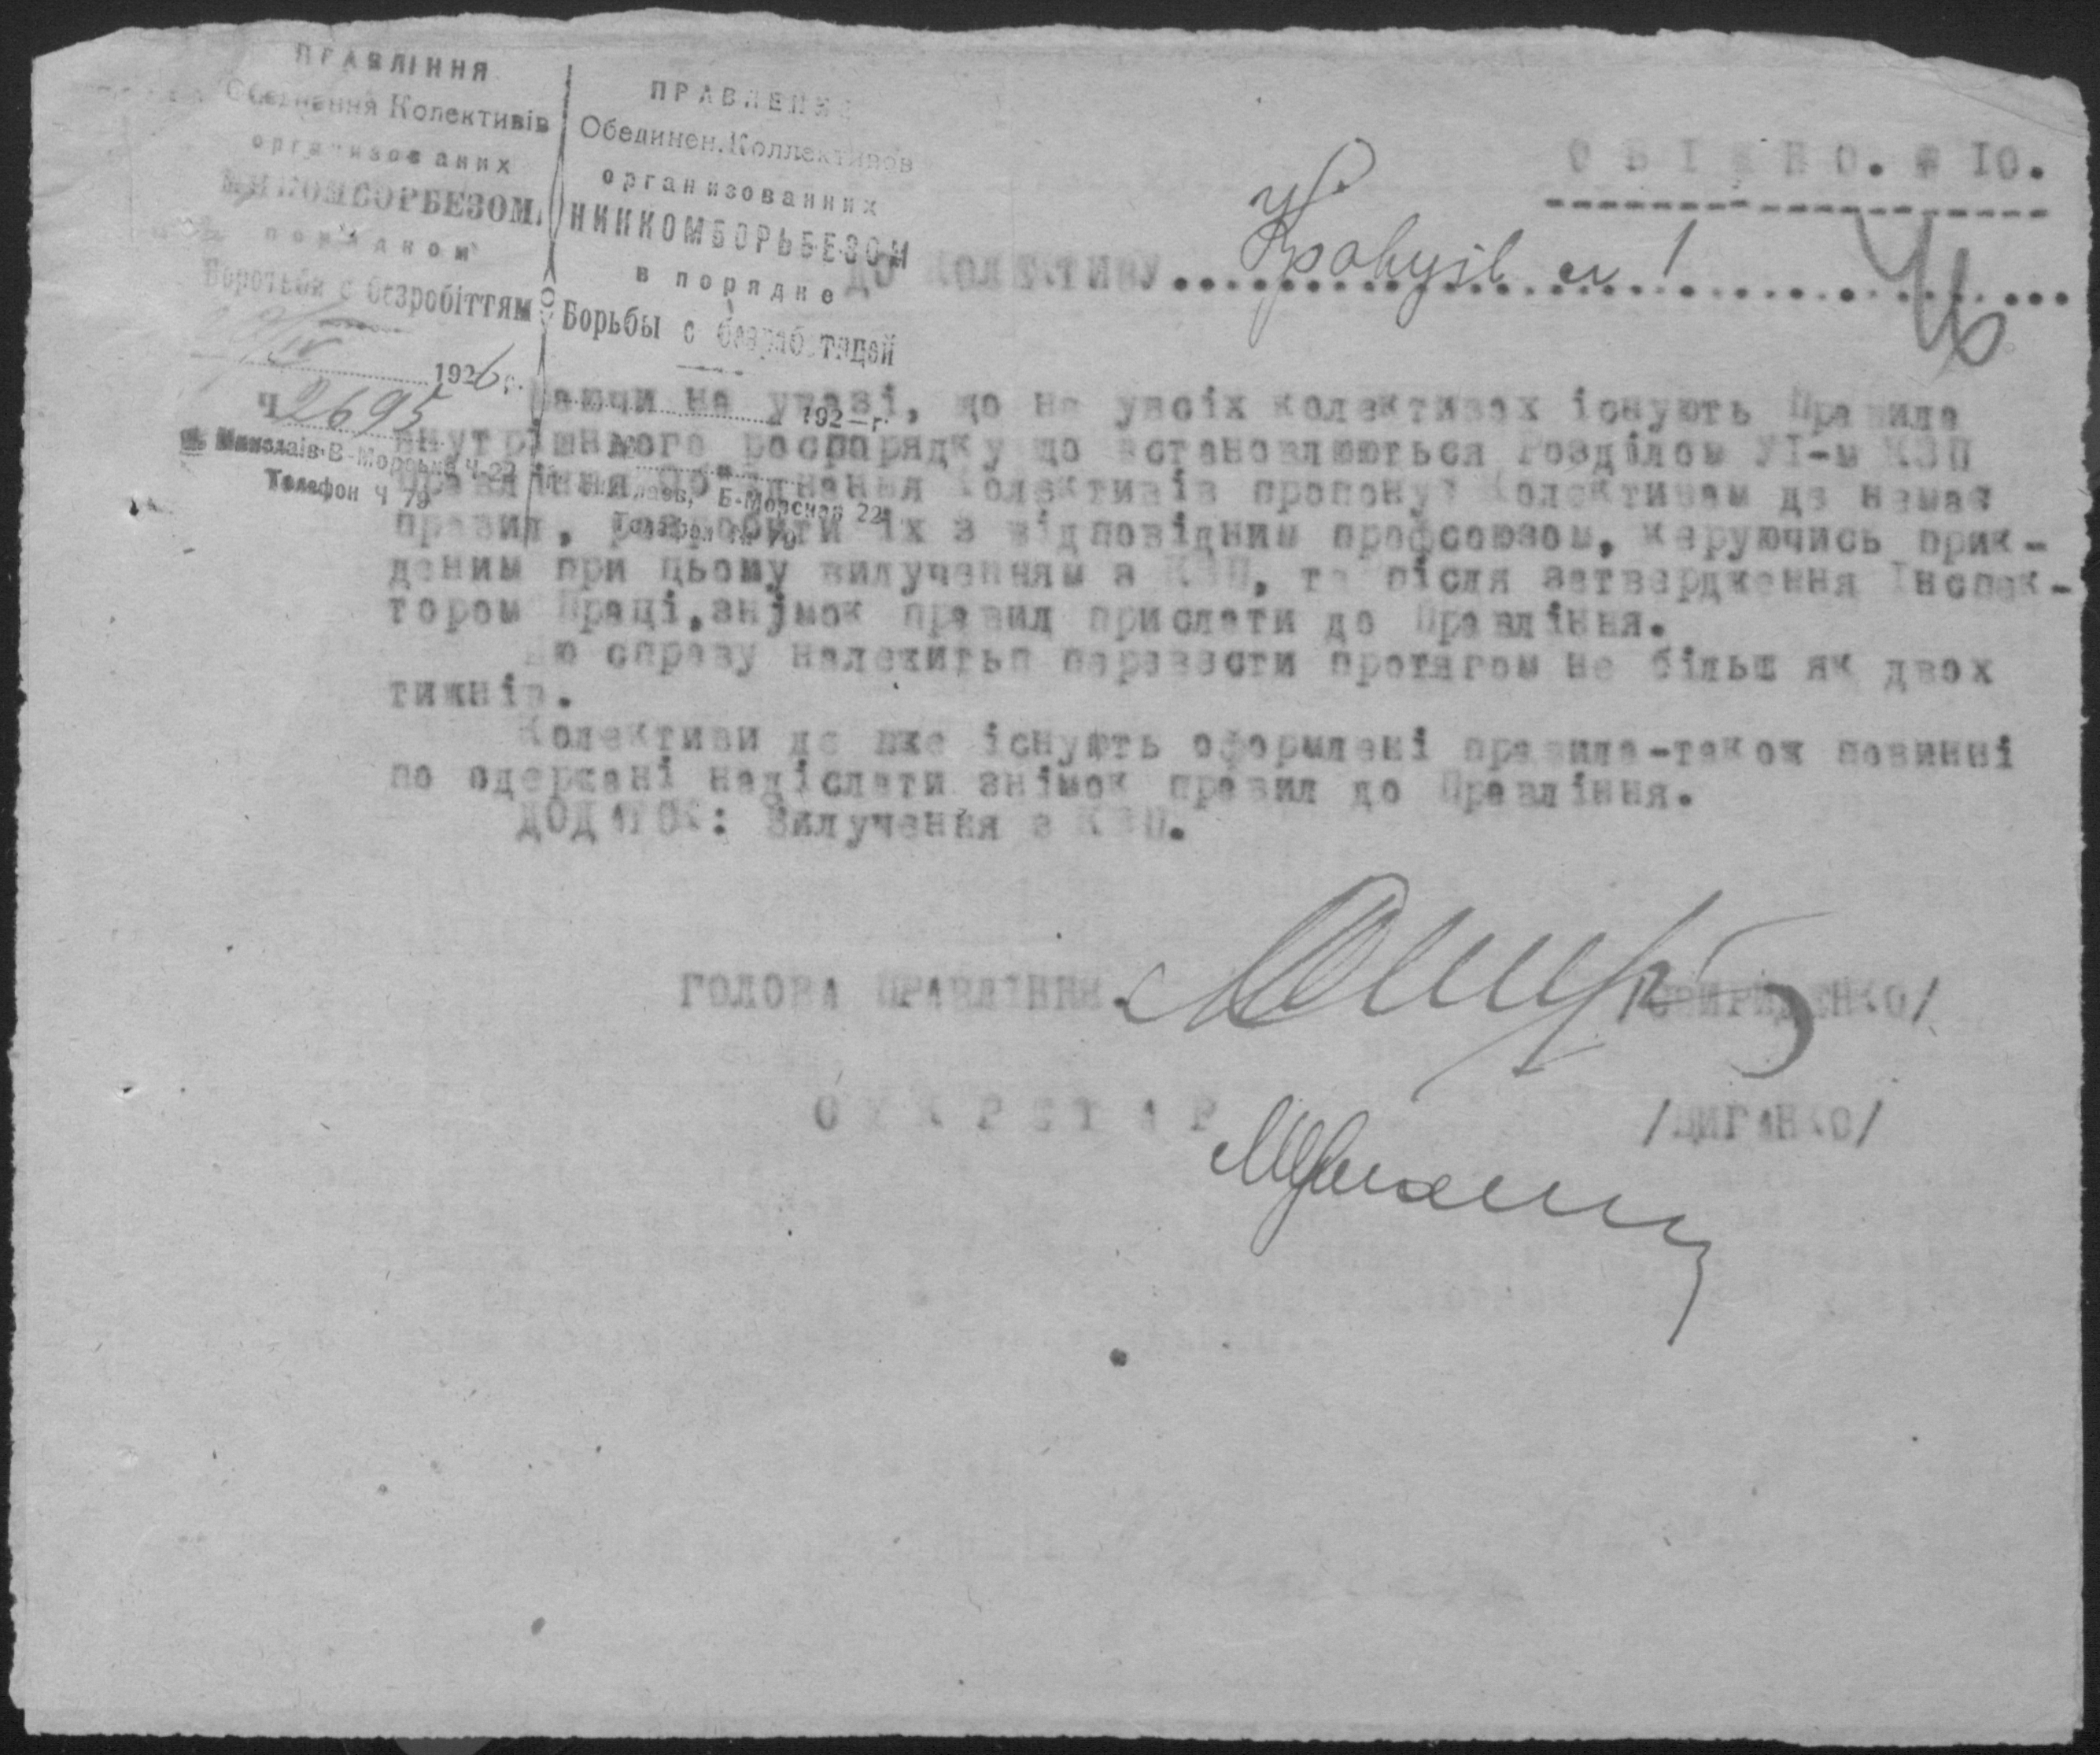 ПРАВЛІННЯ
Обєднання Колективів
організованих
МИККОМБОРБЕЗОМ
порядком
Боротьби с безробіттям
1926 р.
Ч 2695
м. Миколаїв В-Морська ч-22
Телефон Ч 79
ПРАВЛЕНИЕ
Обединен. Коллективов
организованних
НИККОМБОРЬБЕЗОМ
в порядке
Борьбы с безработицей
192 — г.
Б-Морская 22
ОБІЖНО. № 10.
ДО КОЛЕКТИВУ
46
Маючи на увазі, що не увсіх колективах існують Правила
внутрішнього роспорядку що встановлюються Розділом УІ-м КЗП
Правління Обєднання Колективів пропонує Колективам де немає
правил, розробити їх з відповідним профсоюзом, керуючись прик-
деним при цьому вилученням з КЗП, та після затвердження Інспек-
тором Праці, знімок правил прислати до Правління.
Цю справу належитьп перевести протягом не більш як двох
тижнів.
Колективи де вже існують оформлені правила-також повинні
по одержані надіслати знімок правил до Правління.
ДОДАТОК: Вилучення з КЗП.
ГОЛОВА ПРАВЛІННЯ. /СВИРИДЕНКО/
СЕКРЕТАР /ЦИГАНКО/